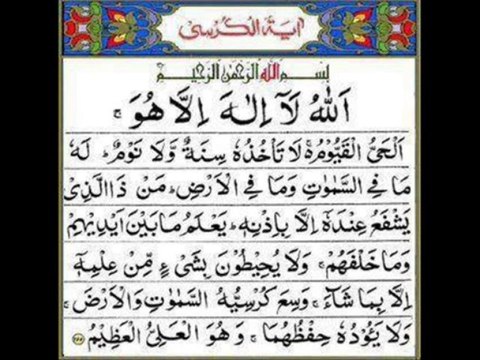 آية الكرسي
بسم الله الرحمن الرحيم
اَللّٰهُ لَآ اِلٰهَ اِلَّا هُوَ ۚ
اَلْحَىُّ الْقَيُّوْمُ ۚ لَا تَاْخُذُهٗ سِنَةٌ وَّلَا نَوْمٌ ؕ لَهٗ
مَا فِى السَّمٰوٰتِ وَمَا فِى الْاَرْضِ ؕ مَنْ ذَا الَّذِىْ
يَشْفَعُ عِنْدَهٗٓ اِلَّا بِاِذْنِهٖ ؕ يَعْلَمُ مَا بَيْنَ اَيْدِيْهِمْ
وَمَا خَلْفَهُمْ ۚ وَلَا يُحِيْطُوْنَ بِشَىْءٍ مِّنْ عِلْمِهٖٓ
اِلَّا بِمَا شَآءَ ۚ وَسِعَ كُرْسِيُّهُ السَّمٰوٰتِ وَالْاَرْضَ ۚ
وَلَا يَـُٔوْدُهٗ حِفْظُهُمَا ۚ وَهُوَ الْعَلِىُّ الْعَظِيْمُ